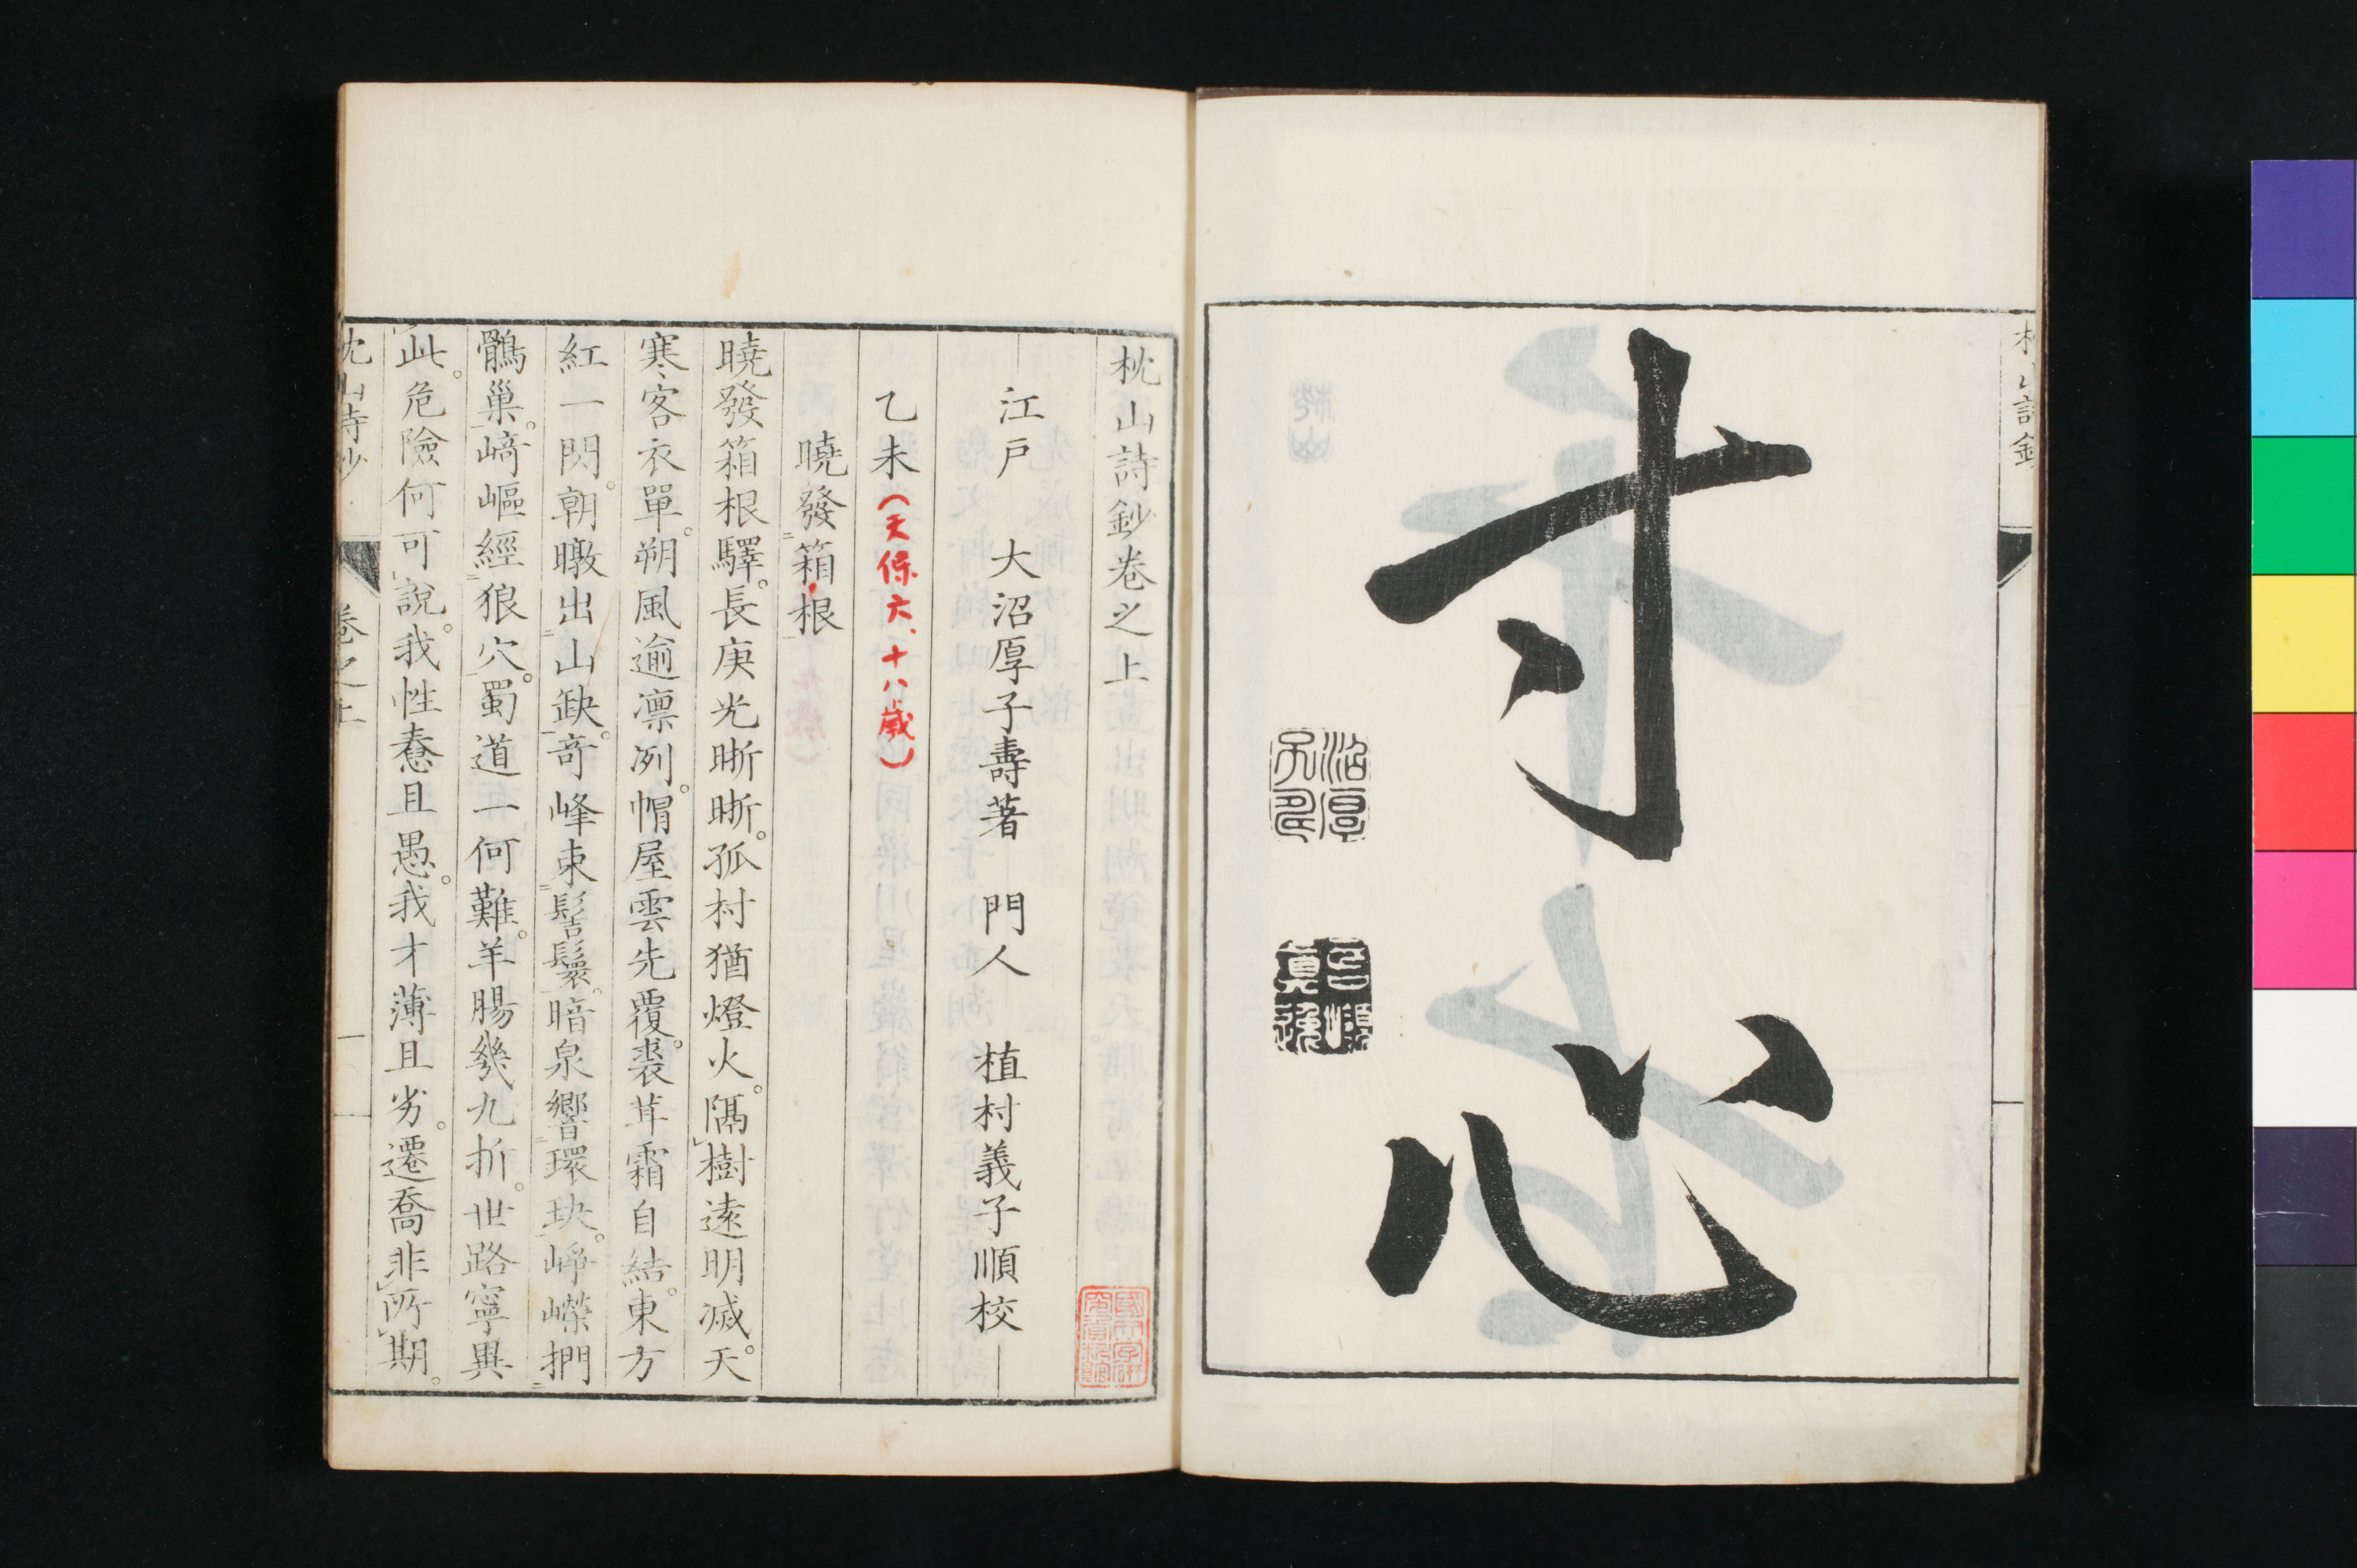 寸心
枕山詩鈔卷之上
江戸　大沼厚子壽著　門人　植村義子順校
乙未（天保六、十八歳）
曉發箱根
曉發箱根驛。長庚光晣晣。孤村猶燈火。隔樹遠明滅。天
寒客衣單。朔風逾凛冽。帽屋雲先覆。裘茸霜自結。東方
紅一閃。朝暾出山缺。奇峰束髻鬟。暗泉響環玦。崢嶸捫
鶻巢。﨑嶇經狼穴。蜀道一何難。羊腸幾九折。世路寧異
此。危險何可說。我性惷且愚。我才薄且劣。遷喬非所期。
枕山詩鈔　卷之上　一